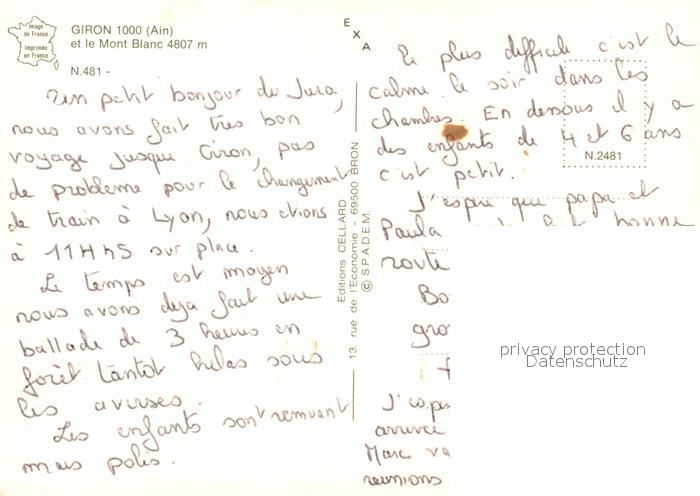 Image de France
Imprimée en France
GIRON 1000 (Ain)
et le Mont Blanc 4807 m
N.481 -
Un petit bonjour du Jura,
nous avons fait tres bon
voyage jusque Giron, pas
de probleme pour le changement
de train à Lyon, nous etions
à 11H45 sur place.
Le temps est moyen
nous avons deja fait une
ballade de 3 heures en
forêt tantot helas sous
les averses.
Les enfants sont remuant
mais polis.
EXA
Editions CELLARD
13, rue de l'Economie - 69500 BRON
© S.P.A.D.E.M.
Le plus difficile c'est le
calme le soir dans les
chambres. En dessous il y a
des enfants de 4 et 6 ans
c'est petit.
N.2481
J'espère que papa et
Paula bonne
route
Bo
gro
J'espe
arrivée
Marc va
reunions
privacy protection
Datenschutz